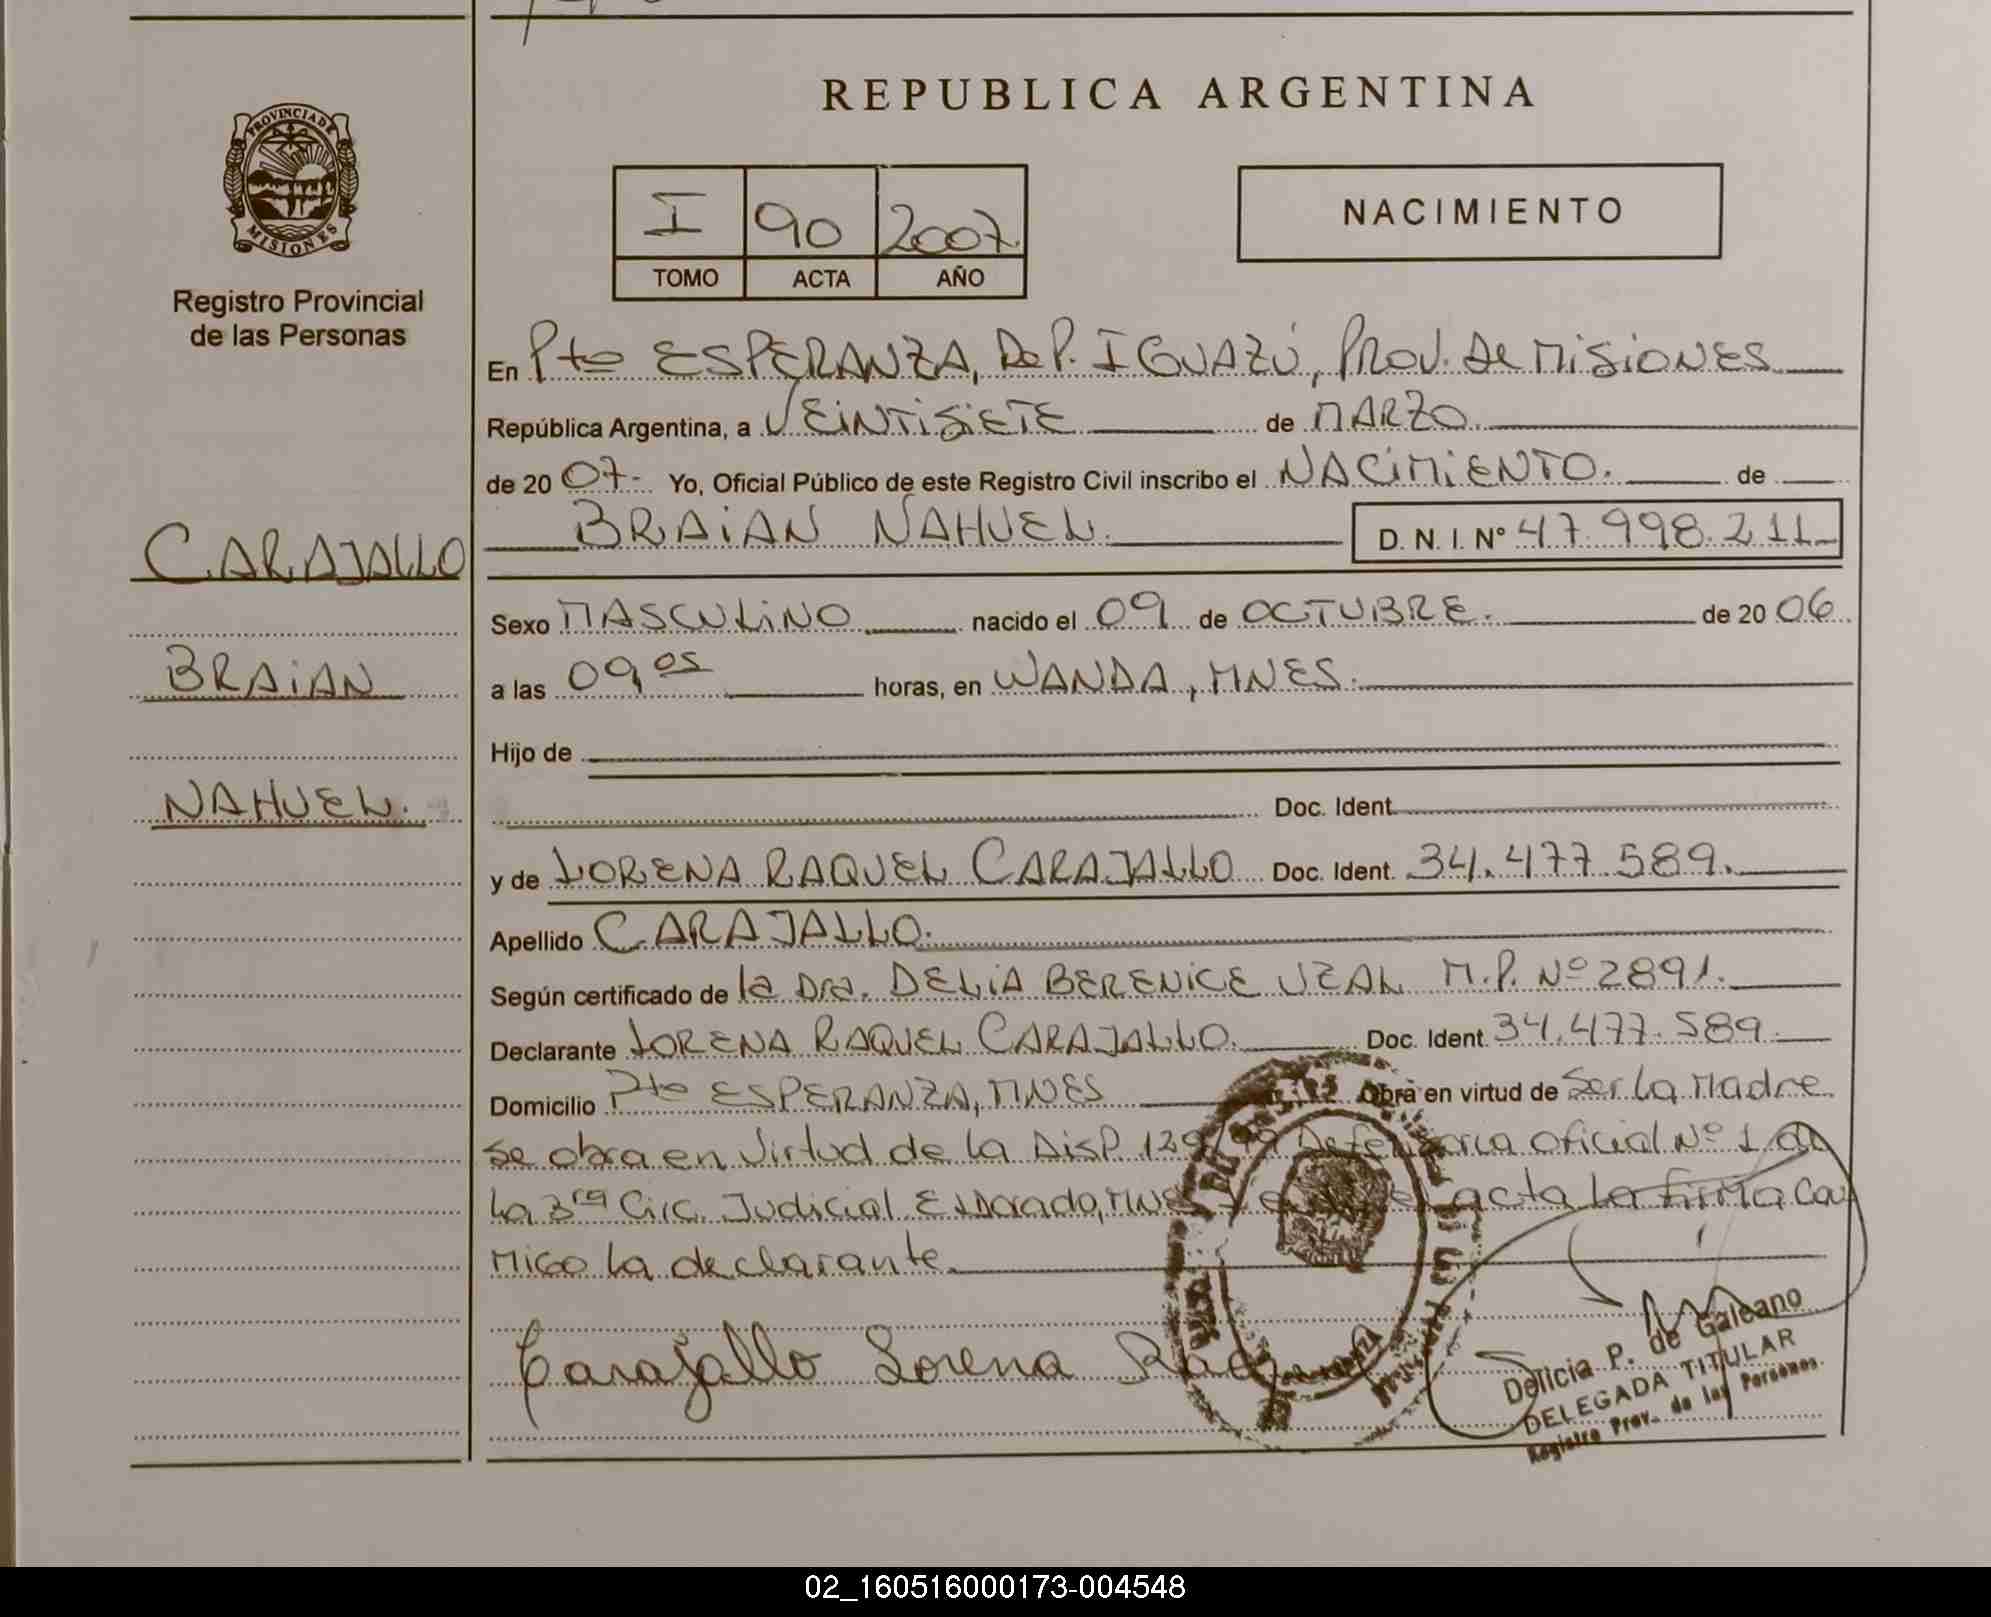 REPUBLICA ARGENTINA
PROVINCIA DE
MISIONES
Registro Provincial
de las Personas
I 90 2007.
TOMO ACTA AÑO
NACIMIENTO
En Pto ESPERANZA, DeP. IGUAZÚ, PROV. de MISIONES
República Argentina, a VEINTISIETE de MARZO.
de 20 07.- Yo, Oficial Público de este Registro Civil inscribo el NACIMIENTO. de
BRAIAN NAHUEL. D. N. I. Nº 47.998.211
CARAJALLO
BRAIAN
NAHUEL.
Sexo MASCULINO nacido el 09 de OCTUBRE. de 20 06
a las 09,05 horas, en WANDA, MNES.
Hijo de
Doc. Ident.
y de LORENA RAQUEL CARAJALLO Doc. Ident. 34.477.589.
Apellido CARAJALLO.
Según certificado de la Dra. DELIA BERENICE UZAL M.P. Nº 2891.
Declarante LORENA RAQUEL CARAJALLO. Doc. Ident. 34.477.589.
Domicilio Pto ESPERANZA, MNES Obra en virtud de Ser la Madre
se obra en virtud de la DisP. 129/ Defensoria oficial Nº 1 de
La 3ra Circ. Judicial ELDorado, MNES acta La Firma Con
Migo la declarante.
Carajallo Lorena
Delicia P. de Galeano
DELEGADA TITULAR
Registro Prov. de las Personas
02_160516000173-004548